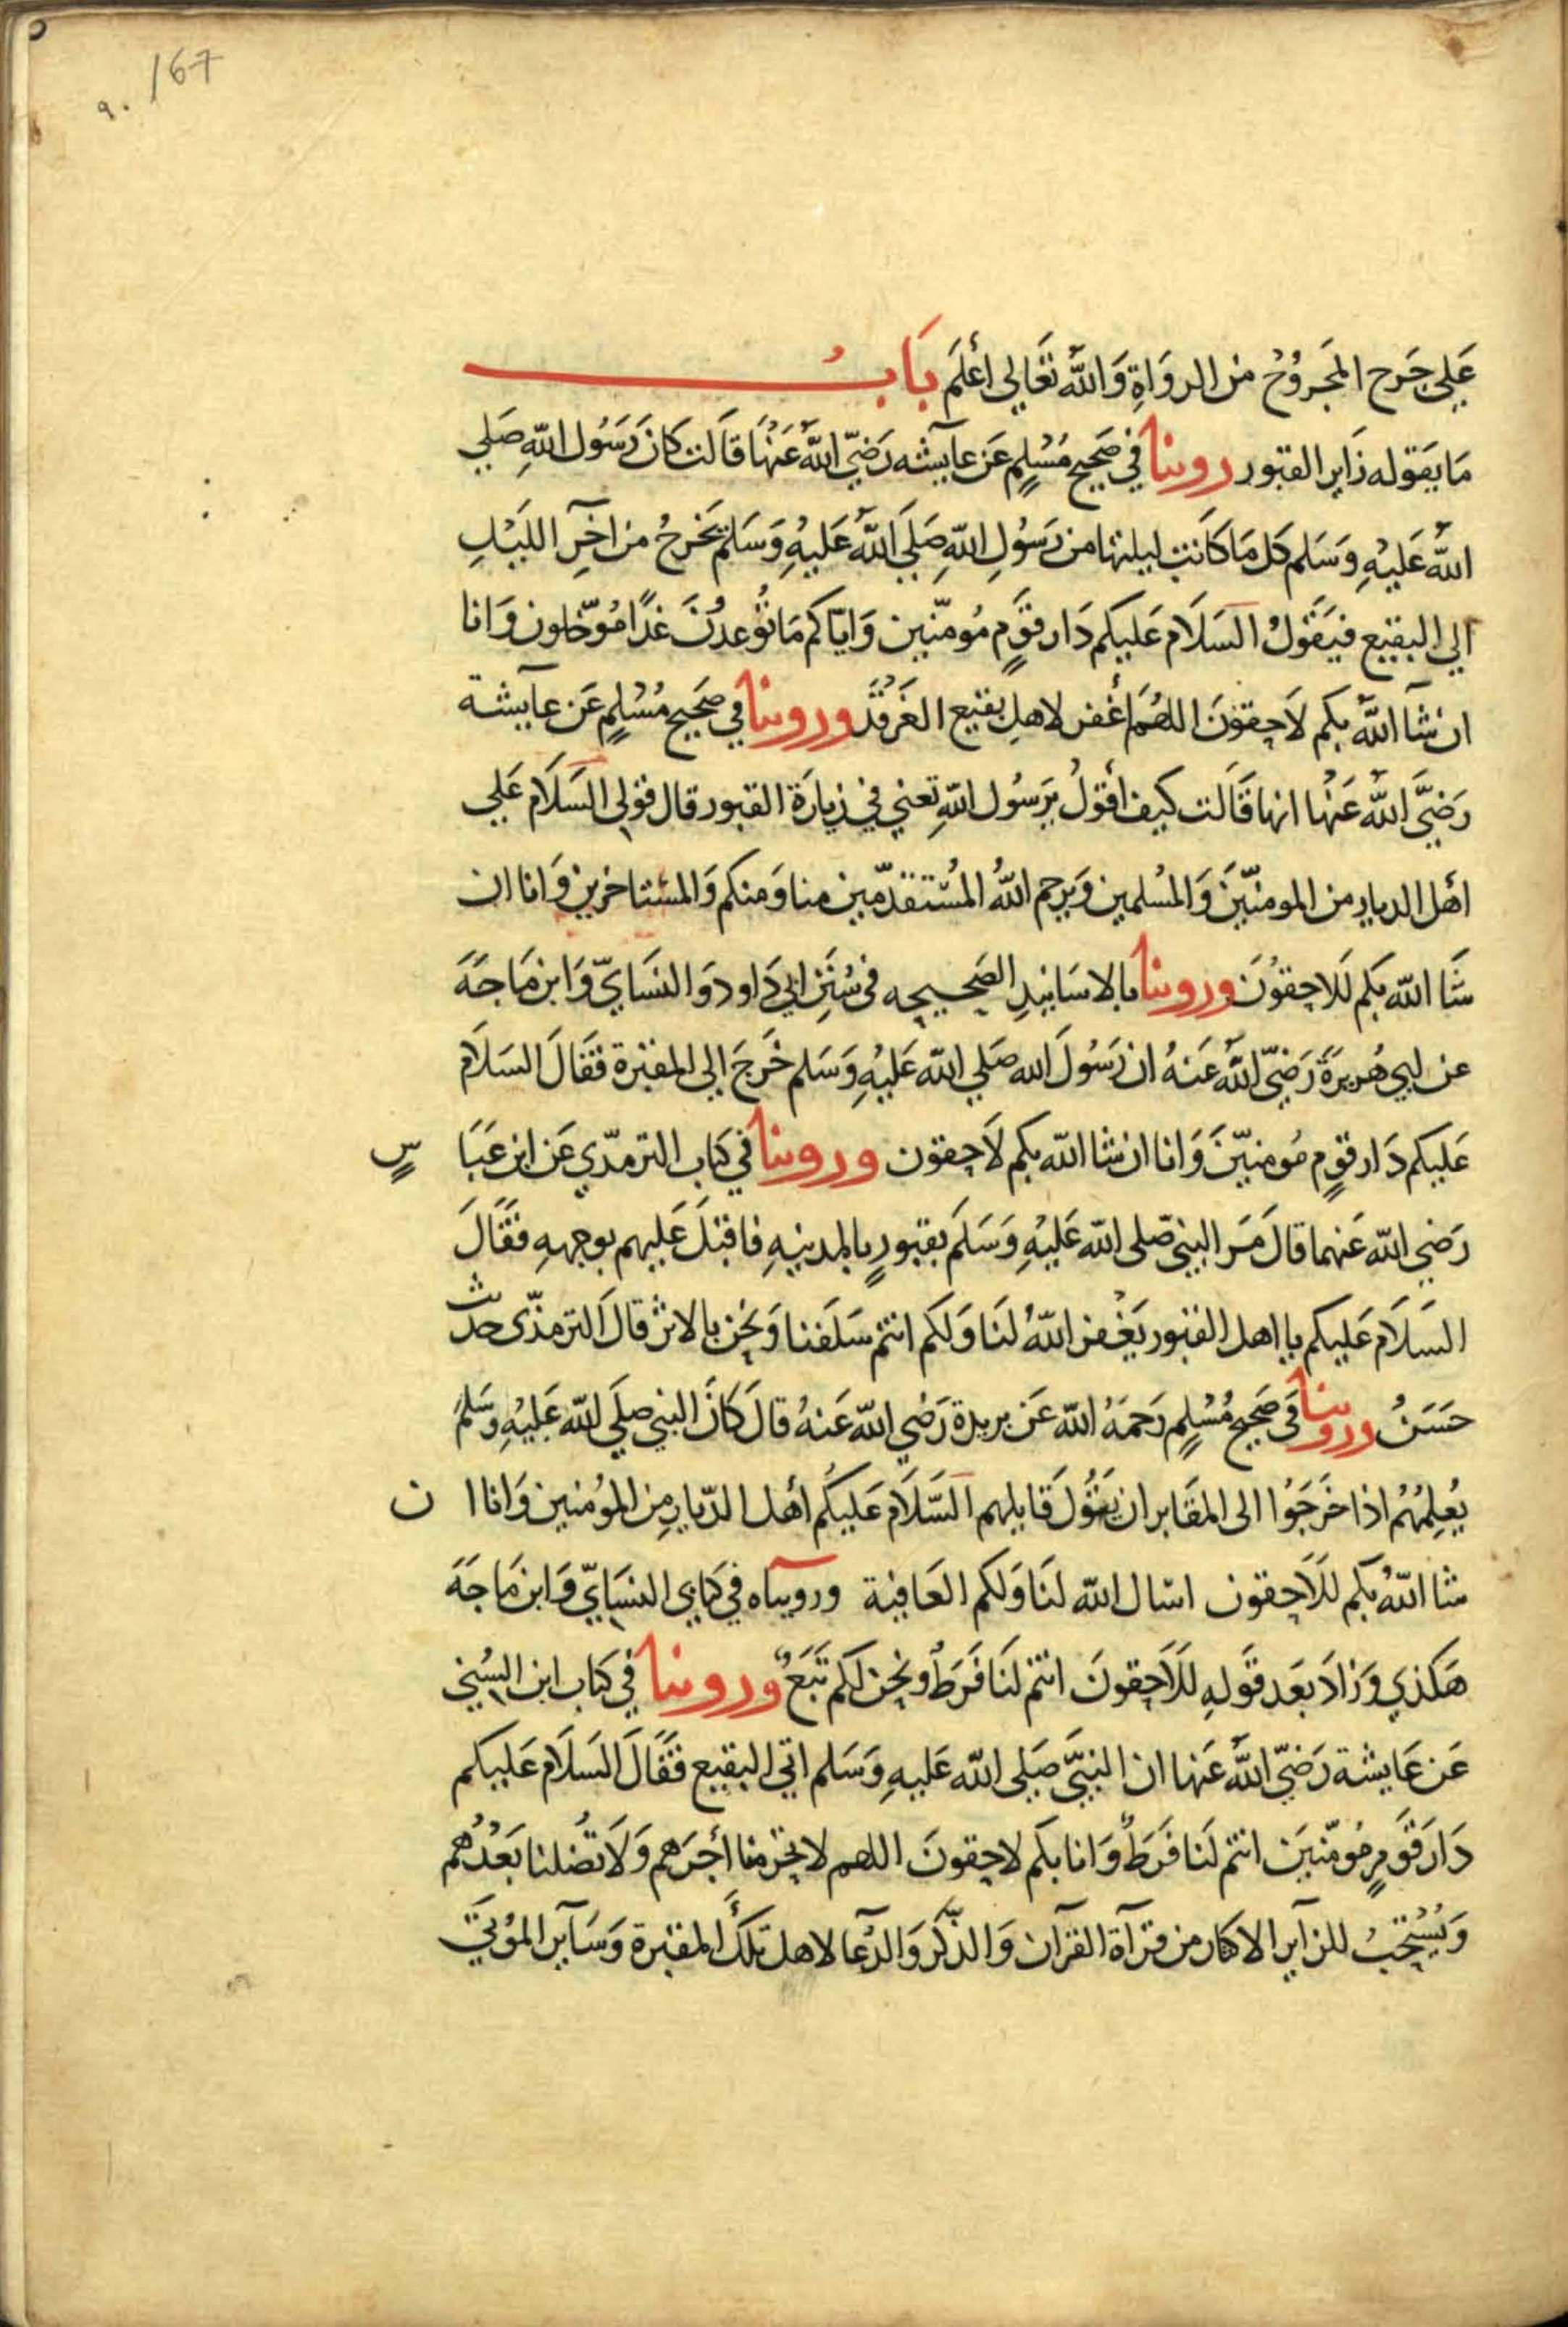 167
٩٠
عَلي جَرح المَجرُوُح من الروَاةِ وَاللّٰهُ تَعَالي أعْلَم بَابُ
مَا يَقوله زَاير القبور روينا في صَحيح مُسْلمٍ عَن عآيشه رَضيّ اللّٰهُ عَنْهَا قَالت كَانَ رَسُول اللّٰهِ صَلي
اللّٰهُ عَليْهِ وَسَلم كل مَا كَانت ليلتها من رَسُولِ اللّٰهِ صَلَي اللّٰهُ عَليْهِ وَسَلم يَخرجُ من آخرِ اللَيْلِ
الي البقيع فيَقُولُ السَلَام عَليكم دَار قَوٍم مُومّنين وَايّاكم مَا تُوعدُنَ غدًا مُوّجلون وَانا
ان شَآ اللّٰهُ بكم لاَحِقوُنَ اللهُمَ أغفر لاهلِ بقيع الغَرقَدْ وروينا في صَحيح مُسْلمٍ عَن عآيشة
رَضيَّ اللّٰهُ عَنْهَا انها قَالَت كيف أقوُلُ يرَسُول اللّٰهِ تعني في زيارَة القبور قال قولى السَلَام عَلي
أهْل الديار من المومنّينَ وَالمُسْلمين وَيرحم اللّٰهُ المُسْتقدّمين منا وَمنكم وَالمسْتاخرين وَانا ان
شَا اللّٰه بكم لَلاحِقوُنَ وروينا بالاسَانيدِ الصَحيحِه في سُنَنِ ابي دَاود وَالنسَايّ وَابن مَاجَةَ
عن ابي هُريرَةَ رَضيّ اللّٰهُ عَنهُ ان رَسُولَ الله صَلي اللّٰه عَليْهِ وَسَلم خَرجَ الي المقبرة فقَالَ السَلَام
عَليكم دَار قَوٍم مُومنيّنَ وَانا ان شا اللّٰه بكم لَاحِقون وروينا في كتاب الترمذّي عَن ابن عَبَا سٍ
رَضي اللّٰه عَنهما قالَ مَر النبيّ صَلى اللّٰه عَليْهِ وَسَلَم بقبورٍ بالمدينهِ فاقبَلَ عَليهم بوجههِ فقَالَ
السَلَام عَليكم يا اهل القبور يَغْفر اللّٰهُ لنَا وَلكم انتم سَلَفنا وَنحن بالاثر قالَ الترمذّى حَدث
حَسَنُ وروينا في صَحيح مُسْلمٍ رَحمَهُ اللّٰه عَن بريدة رَضي اللّٰه عَنهُ قالَ كَانَ النبي صَلي اللّٰه عَليْهِ وسَلم
يُعلِمُهُم اذا خَرَجوُا الى المقَابر ان يَقوُلَ قَايلهم السَّلَام عَليكُم أهْل الدّيارِ مِن المُوُمنين وَانا ا ن
شا اللّٰهُ بكم للَاحِقون اسْال اللّٰه لنَا وَلكم العَافية ورويناه في كتابي النسَايّ وَابن مَاجَةَ
هَكذي وَزادَ بَعد قَولهِ للَاحِقونَ انتم لنَا فَرَطُ ونحن لكم تَبَعٌ وروينا في كتاب ابن السُني
عَن عَايشة رَضيّ اللّٰهُ عَنها ان النبيَّ صَلي اللّٰه عَليهِ وَسَلم اتي البقيع فقَالَ السَلَام عَليكم
دَارَ قَومٍ مُومّنينَ انتم لنَا فَرَطٌ وَانا بكم لاحِقونَ اللهم لا تحرمنا أجْرَهم وَلَا تُضلنا بَعْدُهم
وَيُسْتحَبُ للزآير الاكثار من قرآة القرآن وَالذّكر وَالدُّعا لاهل تلكَ المقبرة وَسَآير الموُتىَ